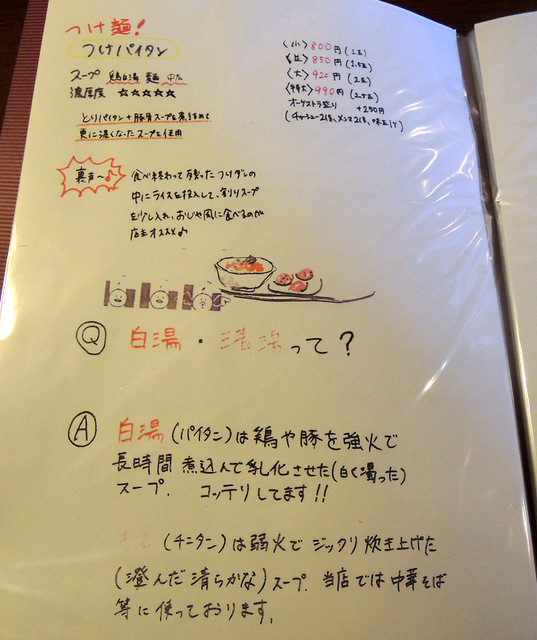 つけ麺!
つけパイタン
スープ 鶏白湯 麺 中太
濃厚度 ☆☆☆☆☆
とりパイタン+豚骨スープを煮詰めて
更に濃くなったスープを使用
〈小〉800円(1玉)
〈並〉850円(1.5玉)
〈大〉920円(2玉)
〈特大〉990円(2.5玉)
オーケストラ盛り +250円
(チャーシュー2枚、メンマ2倍、味玉1ケ)
裏声〜♪
食べ終わって残ったつけダレの
中にライスを投入して、割りスープ
を少し入れ、おじや風に食べるのが
店主オススメ♪
Q 白湯・清湯って?
A 白湯(パイタン)は鶏や豚を強火で
長時間 煮込んで乳化させた(白く濁った)
スープ. コッテリしてます!!
(チンタン)は弱火で ジックリ 炊き上げた
(澄んだ清らかな)スープ. 当店では中華そば
等に使っております.